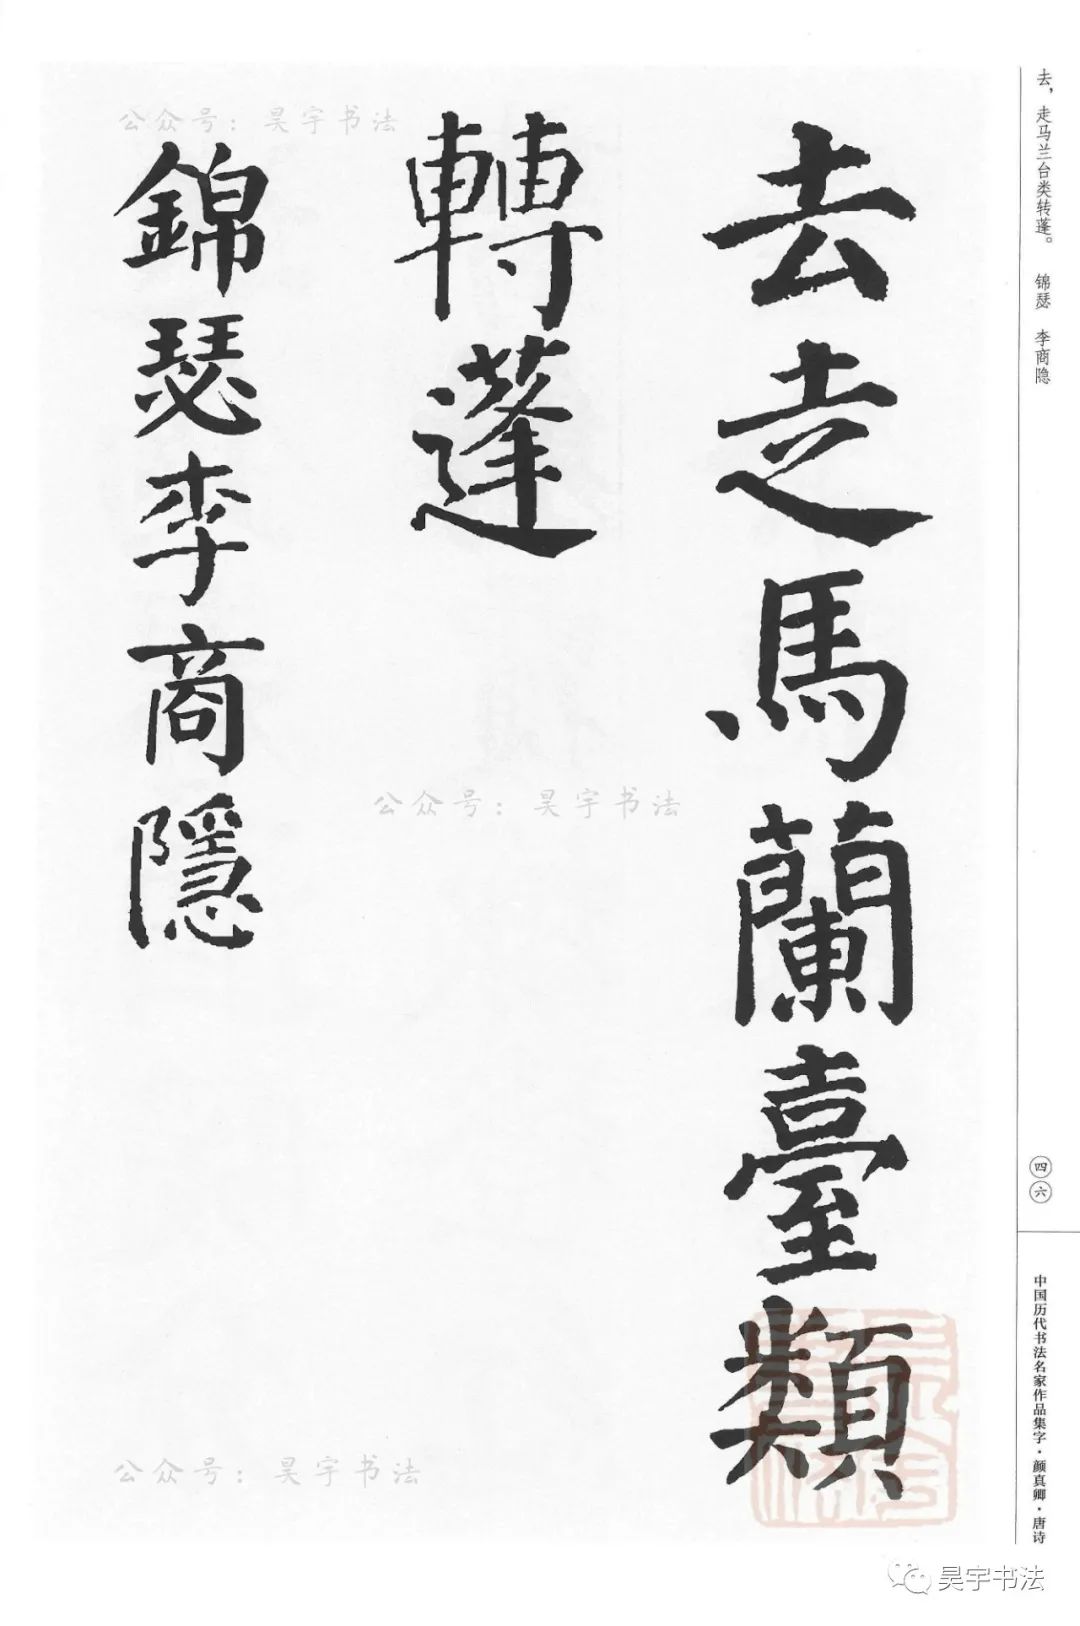 去走馬蘭臺類
轉蓬
錦瑟李商隱
去，走马兰台类转蓬。 锦瑟 李商隐
四六
中国历代书法名家作品集字·颜真卿·唐诗
公众号：昊宇书法
公众号：昊宇书法
公众号：昊宇书法
昊宇书法